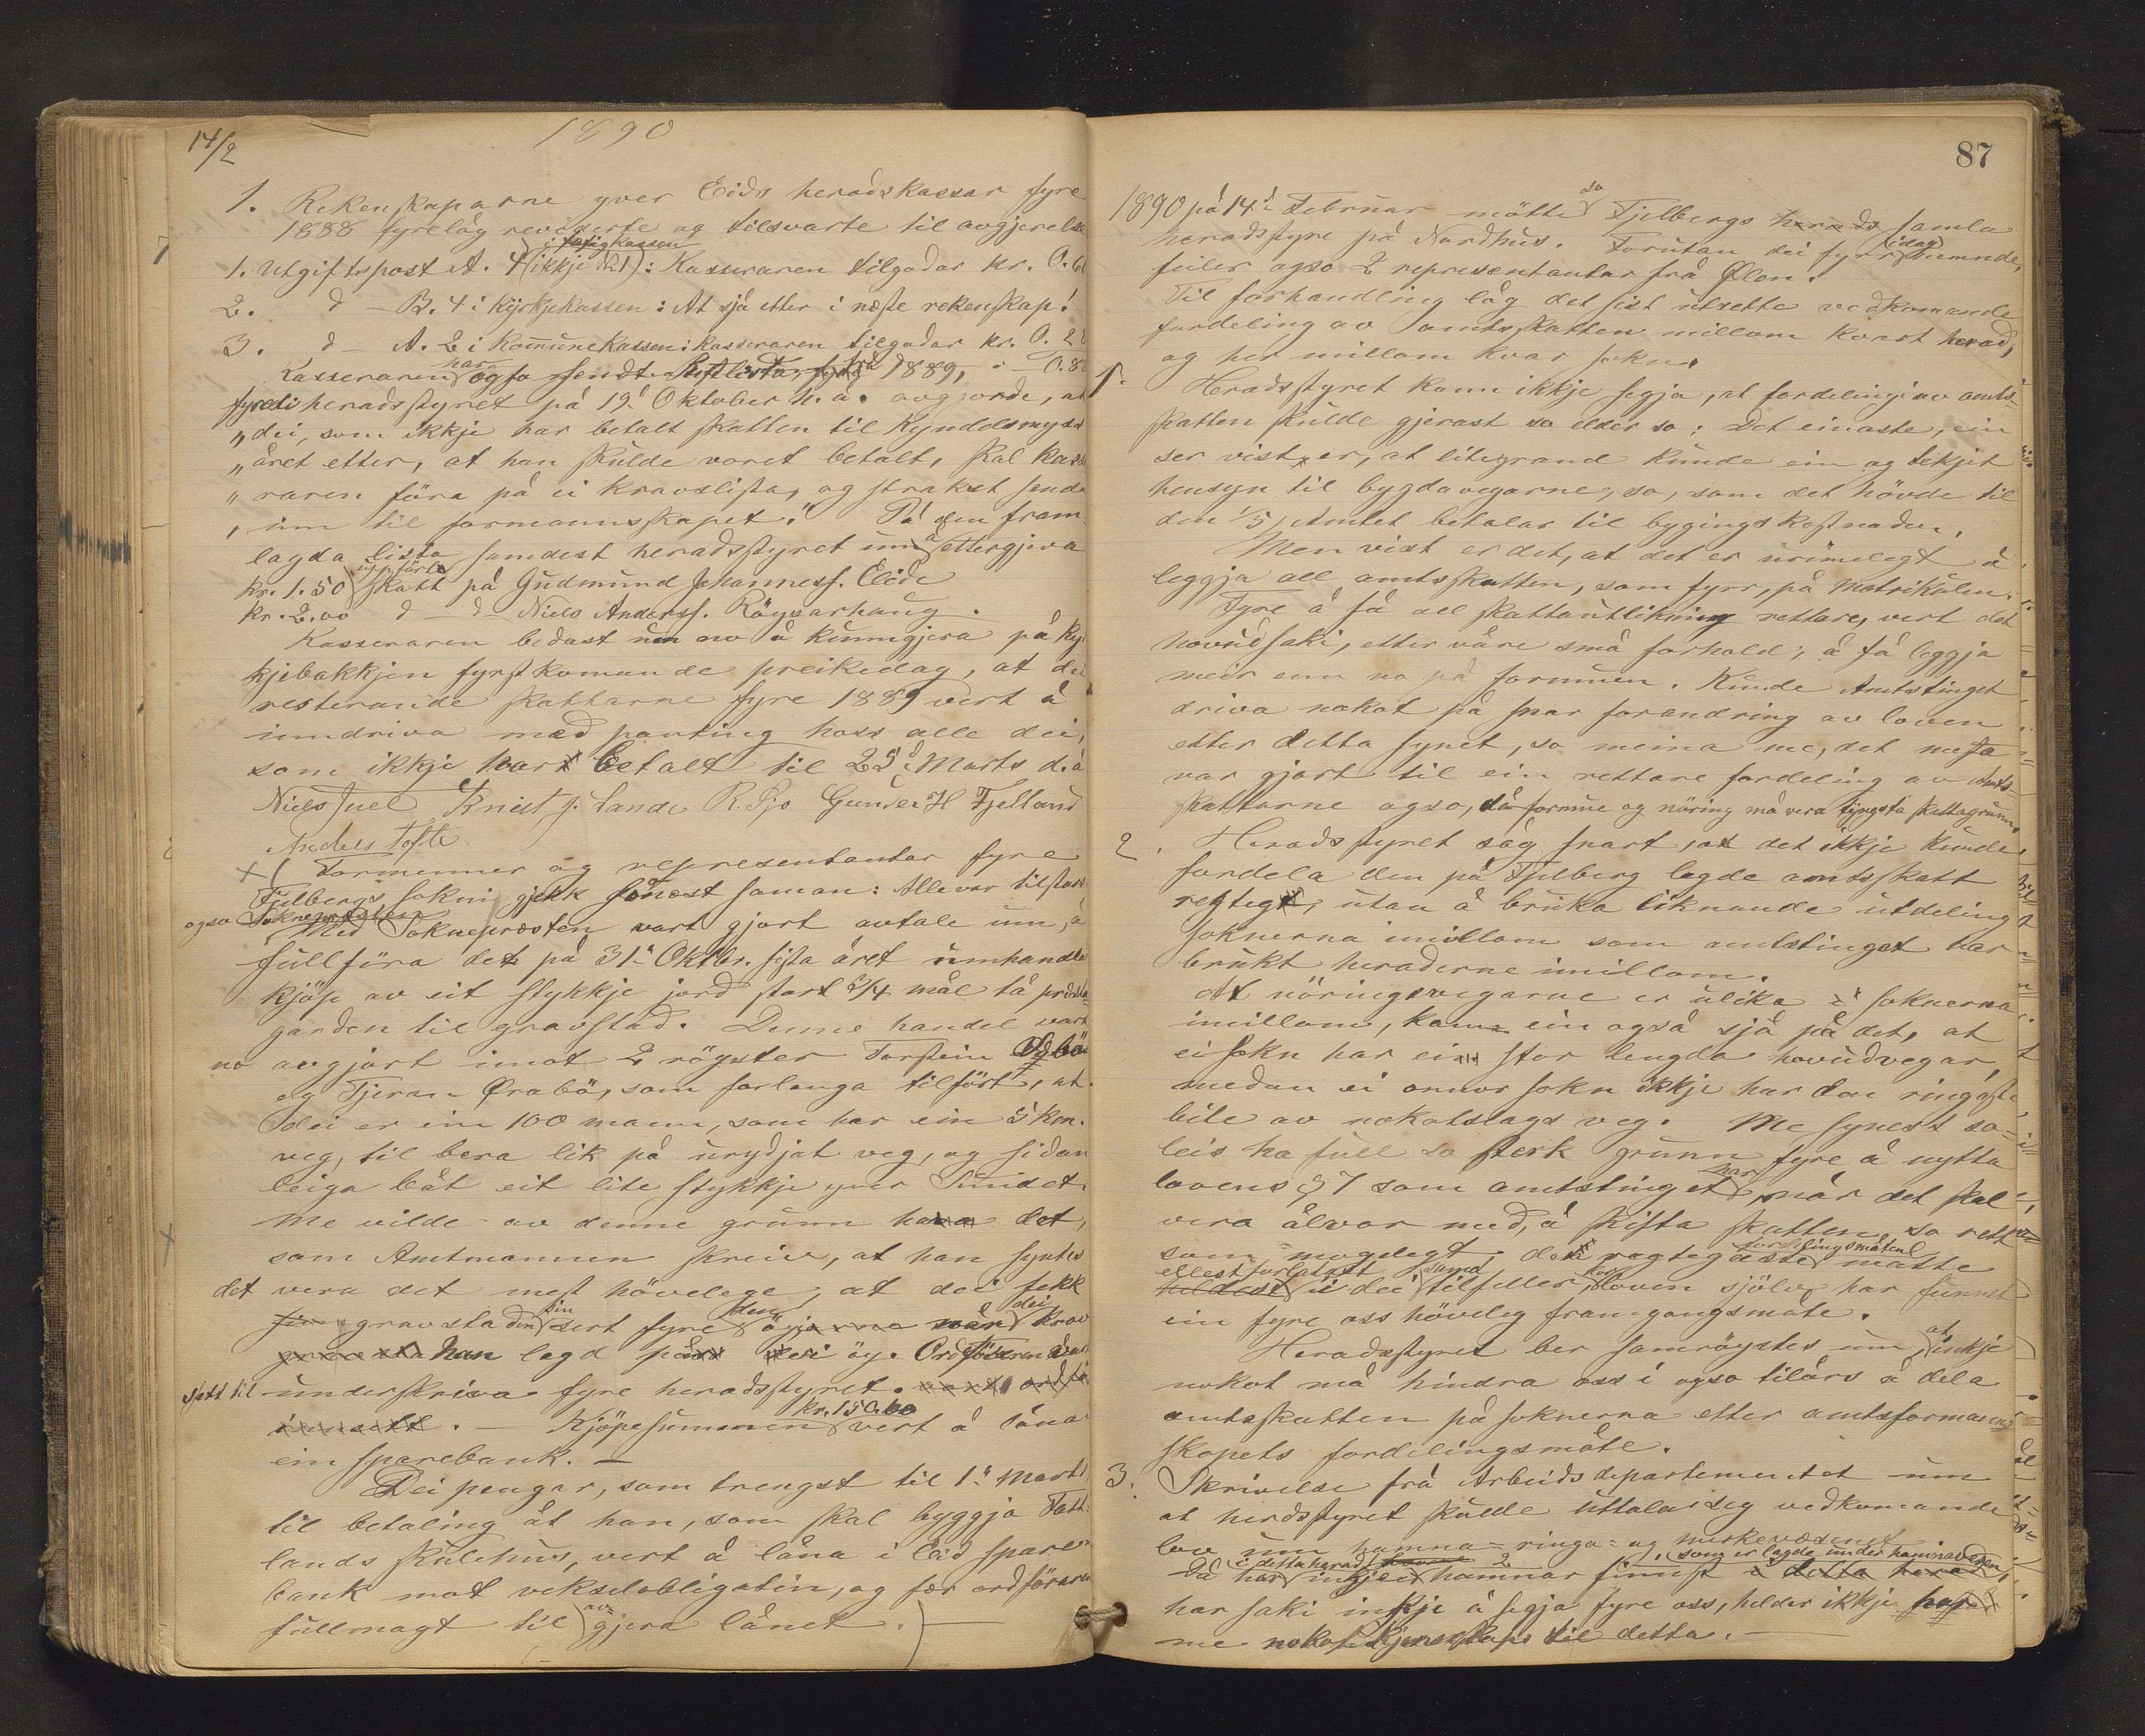 14/2
1890
1. Rekenskaparne yver Eids heradskassar fyre
1888 fyrelåg reviderte og tilsvarte til avgjerelse
i fatigkassen
1. Utgiftspost A. 4 (ikkje № 1): Kasseraren tilgodar kr. 0.6
2. d - B. 4 i Kyrkjekassen: At sjå etter i næste rekenskap!
3. d - A. 2 i Komunekassen: Kasseraren tilgodar kr. 0.28
Kasseraren har ogso sendt Restlista frå 1889, - 0.88
fyredi heradsstyret på 19d Oktober n. å. avgjorde, at
"dei, som ikkje har betalt skatten til Kyndelsmyss
"året etter, at han skulde voret betalt, skal kasse
"raren föra på ei kravslista, og strakst senda
"inn til formannskapet." På den fram-
lagda lista samdest heradsstyret um å ettergjeva
kr. 1.50 uppförte skatt på Gudmund Johanness. Eide
kr. 2.00 d - d - Niels Anderss. Röysarhaug.
Kasseraren bedast um av å kunngjera på ky
kjebakkjen fyrstkomande preikedag, at dei
resterande skattarne fyre 1889 vert å
inndriva med panting hoss alle dei,
som ikkje har betalt til 25d Marts d. å
Niels Juel Knut J. Lande R. Sjo Gunder H Fjelland
Anders Tofte
+ ( Formenner og representantar fyre
Fjelbergs sokn gjekk sonæst saman: Alle var tilstads
ogso Soknepresten
Med Soknepresten vart gjort avtale um, å
fullföra det på 31d Oktbr. sista året umhandla
kjöp av eit stykkje jord, stort 3/4 mål tå prests
garden til gravstad. Denne handel vart
no avgjort imot 2 röyster Torstein Ölbö
og Tjeran Örabö, som forlanga tilfört, at
dei er ein 100 mann, som har ein 5 km.
veg, til bera lik på urydjat veg, og sidan
leiga båt eit lite stykkje yver Sundet.
Me vilde av denne grunn ha det,
som Amtmannen skreiv, at han syntes
det vera det mest hövelege, at dei fekk
gravstaden sin sert fyre den öyi når dei krov
han lagd på ei öy. Ordföraren vart
sett til underskriva fyre heradsstyret.
. - Kjöpesummen kr. 150.00 vert å låna
ein sparebank. -
Dei pengar, som trengst til 1d Marts
til betaling åt han, som skal byggja Tatt-
lands skulehus, vert å låna i Eid spare-
bank mot vekselobligatin, og fær ordföraren
fullmagt til av-gjera lånet. )
87
1890 på 14d Februar mötte so Fjelbergs samla
heradsstyre på Nordhus. Forutan dei fyrr (idag) numnde,
feiler ogso 2 representantar frå Ølen.
Til forhandling låg det sist utsette vedkomande
fordeling av amtsskatten millom kvart herad,
og her millom kvar sokn.
1. Heradsstyret kann ikkje segja, at fordelingi av amts-
skatten skulde gjerast so elder so; Det einaste, ein
ser vist er, at litegrand kunde ein og tekjet
hensyn til bygdavegarne, so, som det hövde til
den 1/5, Amtet betalar til bygingskostnaden.
Men vist er det, at det er urimelegt å
leggja all amtsskatten, som fyrr, på Matrikulen.
Fyre å få all skattautlikning rettare, vert det
hovudsaki, etter våre små forhold, å få leggja
meir enn no på formuen. Kunde Amtstinget
driva nokot på snar forandring av loven
etter detta synet, so meina me, det mesta
var gjort til ein rettare fordeling av Amts-
skattarne ogso, då formue og näring må vera tyngsta skattagrunn
2. Heradsstyret såg snart, at det ikkje kunde
fordela den på Fjelberg lagde amtsskatt
regtegt, utan å bruka liknande utdeling
soknerna imillom som amtstinget har
brukt heraderne imillom.
At näringsvegarne er ulike i soknerna
imillom, kann ein også sjå på det, at
ei sokn har ein stor lengda hovudvegar,
medan ei onnor sokn ikkje har den ringaste
bite av nokotslags veg. Me synest so-
leis ha full so sterk grunn fyre å nytta
lovens § 7 som amtstinget har, når det skal
vera ålvor med, å skifta skatten so rett
som mogelegt; den regtegaste fordelingsmåten måtte
ellest forlatast i dei samd tilfeller, kor loven sjölv har funnet
ein fyre oss höveleg framgangsmåte.
Heradsstyret ber samröystes um, at inkje
nokot må hindra oss i ogso tilårs å dela
amtsskatten på soknerna etter amtsformann-
skapets fordelingsmåte.
3. Skrivelse frå Arbeidsdepartementet um
at herdsstyret skulde uttala seg vedkomande
lov um hamna- ringa- og merkevæsenet
Då i detta herad inkje hamnar finnst, som er lagde under hamnavæsen,
har saki inkje å segja fyre oss, helder ikkje har
me nokot kjenskap til detta. -